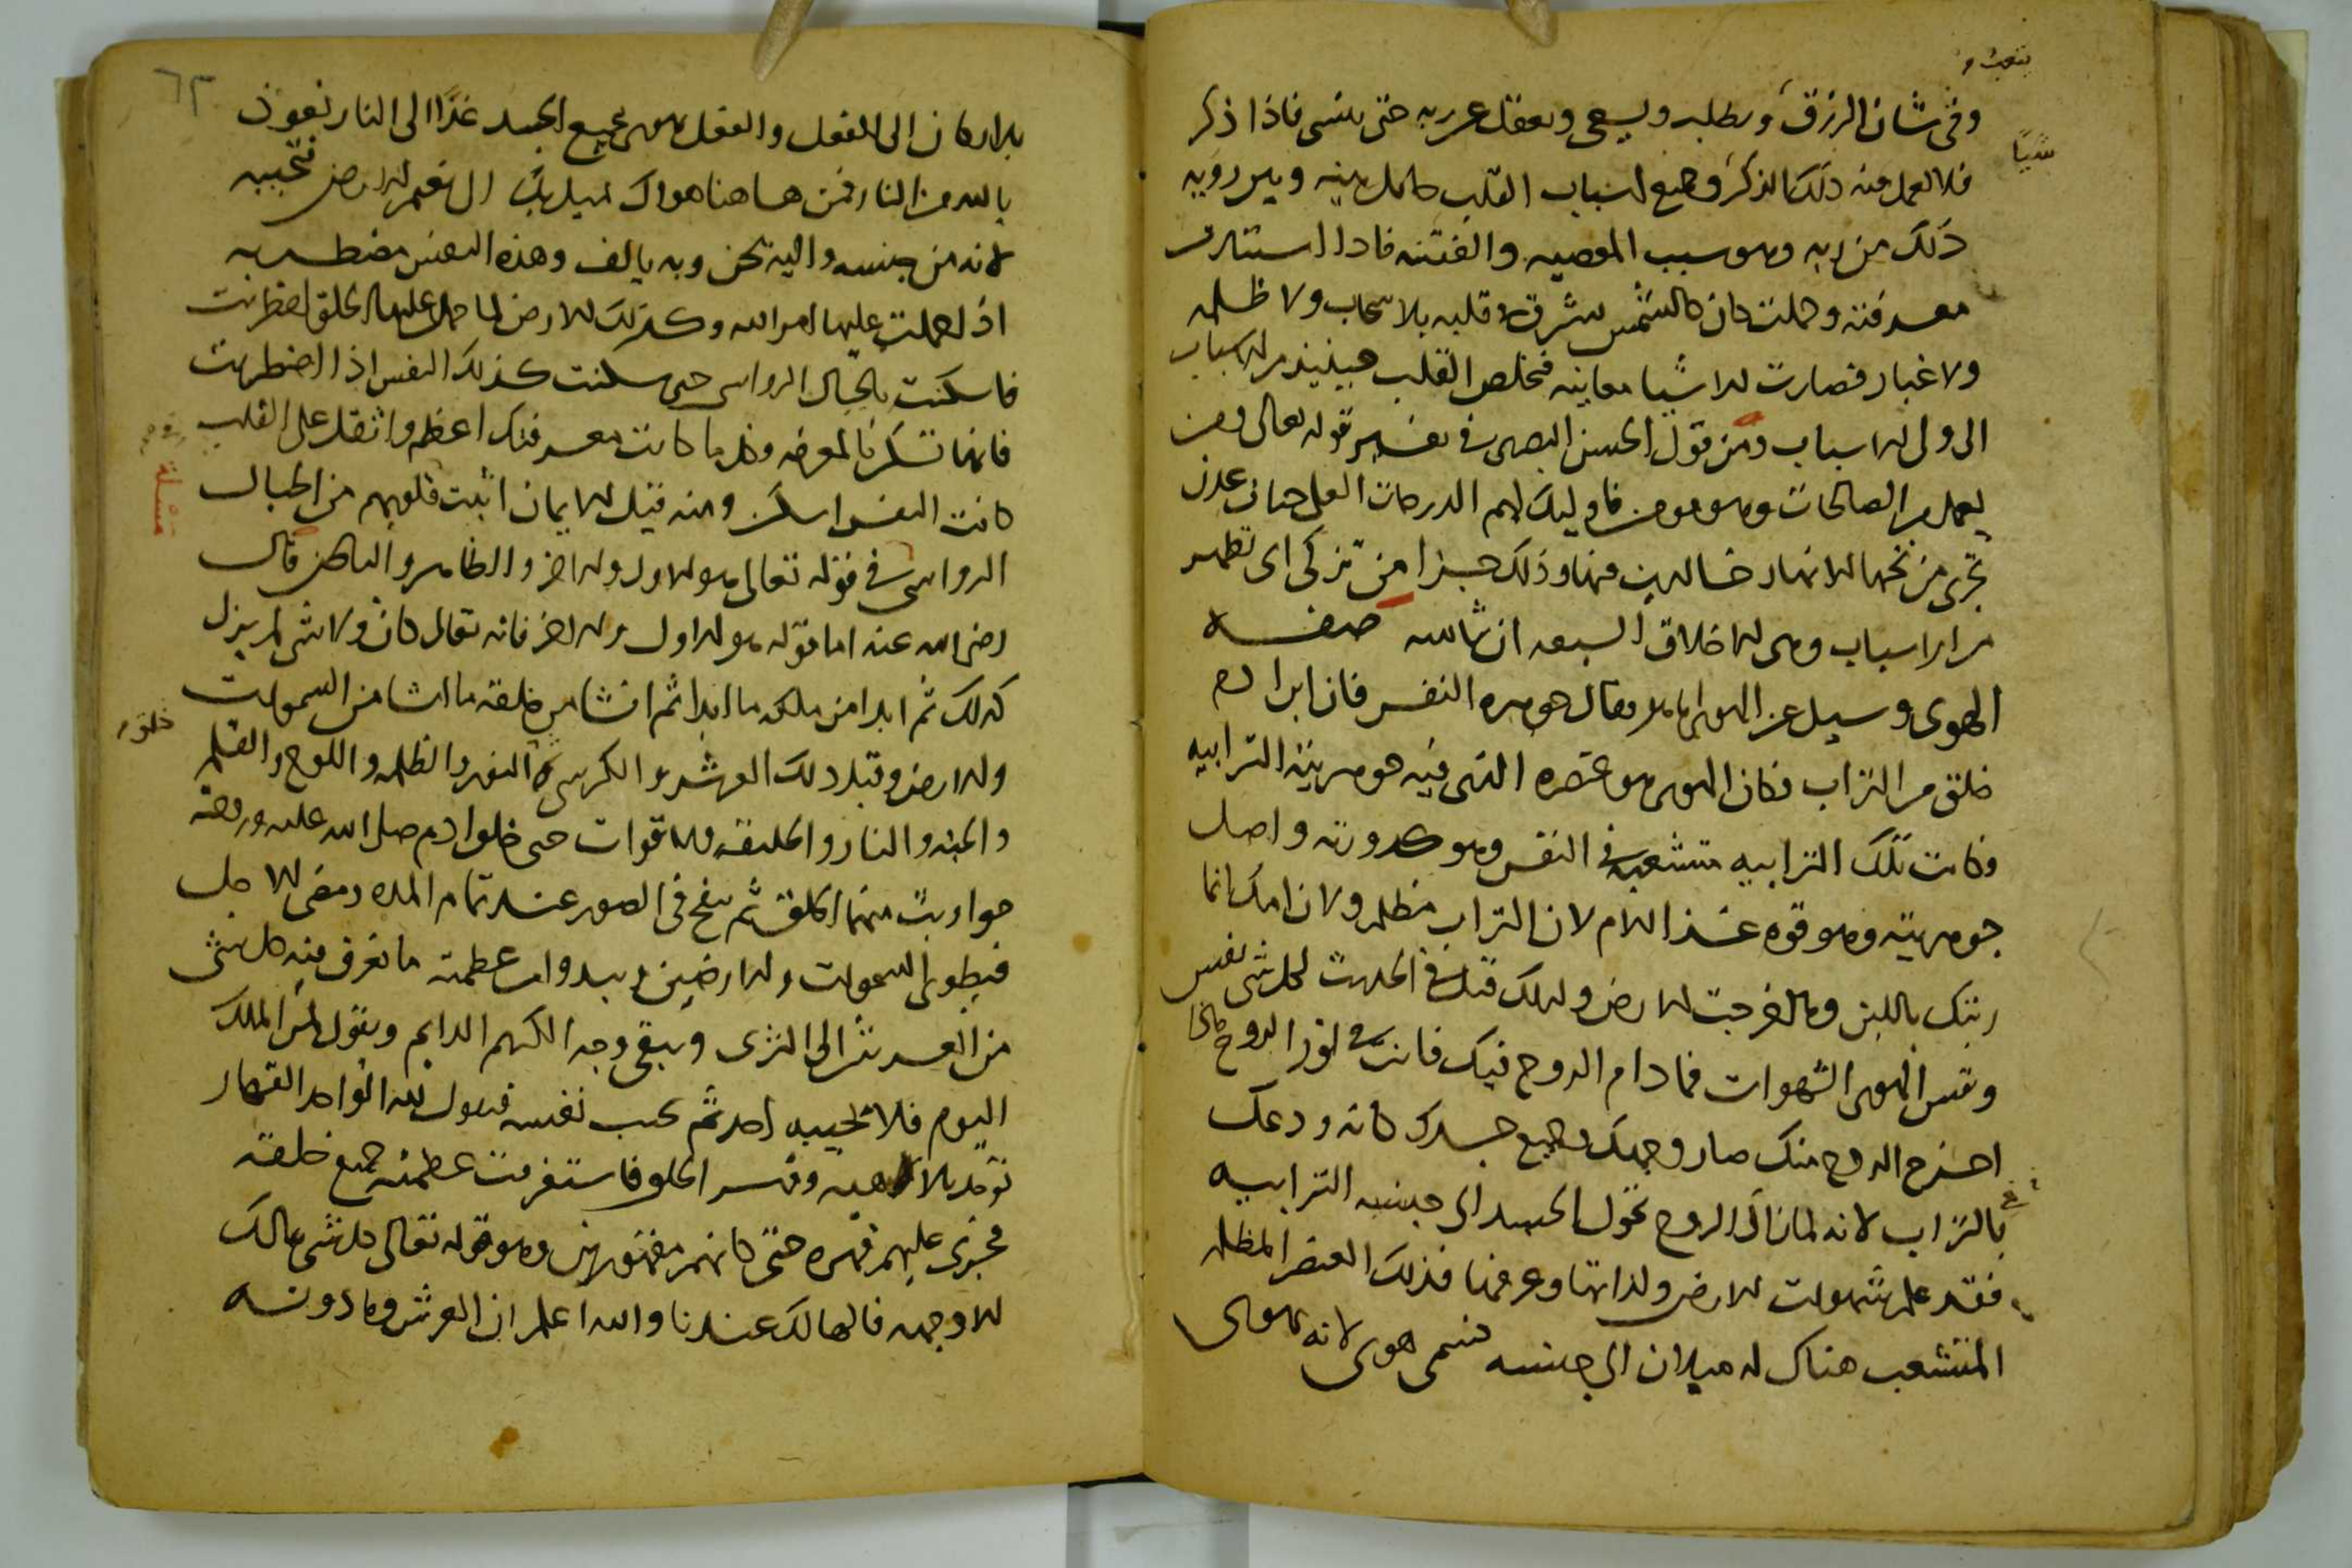 وفى شان الرزق ويطلبه ويسعى ويغفل عن ربه حتى ينسى فاذا ذكر
شيًا
فلا يعمل فيه ذلك الذكر وجميع اسباب القلب حايل بينه وبين رويه
ذلك من ربه وهو سبب المعصيه والفتنه فاذا استنارت
معرفته وجلت كان كالشمس تشرق قلبه بلا سحاب ولا ظلمه
ولا غبار فصارت الاشيا معاينه فتخلص القلب حينيذ من الاسباب
الى ولى الاسباب ومن قول الحسن البصرى فى تفسير قوله تعالى ومن
يعمل من الصالحات وهو مومن فاوليك لهم الدرجات العلى جنات عدن
تجرى من تحتها الانهار خالدين فيها وذلك جزا من تزكى اى تطهر
من الاسباب وهى الاخلاق السبعه ان شا الله صفه
الهوى وسيل عن الهوى ما هو فقال جوهره النفس فان ابن ادم
خلق من التراب فكان الهوى هو عنصره الذى فيه جوهريته الترابيه
وكانت تلك الترابيه متشعبه فى النفس وهو كدورته واصل
جوهريته وهو قوه غذا الام لان التراب مظلم ولان امك انما
ربتك باللبن وما اخرجت الارض ولذلك قيل فى الحديث لكل شى نفس
ونفس الهوى الشهوات فما دام الروح فيك فانت فى نور الروح فاذا
اخرج الروح منك صار وجهك وجميع جسدك كانه ودعك
بالتراب لانه لما زال الروح تحول الجسد الى جنسه الترابيه
فقد علم شهوات الارض ولذاتها وعرفها فذلك العنصر المظلم
المتشعب هناك له ميلان الى جنسه فسمى هوى لانه يهوى
٦٣
بالاركان الى الفعل والفعل يهوى بجميع الجسد غدًا الى النار نعوذ
بالله من النار فمن هاهنا هواك يميل بك الى نعيم الارض فتحبه
لانه من جنسه واليه يحن وبه يالف وهذه النفس مضطربه
اذا حملت عليها امر الله وكذلك الارض لما حمل عليها الخلق اضطربت
فاسكنت بالجبال الرواسى حتى سكنت كذلك النفس اذا اضطربت
فانها تسكن بالمعرفه وكلما كانت معرفتك اعظم واثقل على القلب
كانت النفس اسكن ومنه قيل الايمان اثبت فى قلوبهم من الجبال
الرواسى فى قوله تعالى هو الاول والاخر والظاهر والباطن قال
مسئلة
رضى الله عنه اما قوله هو الاول والاخر فانه تعالى كان ولا شى لم يزل
كذلك ثم ابدا من ملكه ما ابدا ثم انشا من خلقه ما انشا من السموات
والارض وقبل ذلك العرش والكرسى والنور والظلمه واللوح والقلم
والجنه والنار والخليقه والاقوات حتى خلق ادم صلى الله عليه وزوجته
حوا وبث منهما الخلق ثم ينفخ فى الصور عند تمام المده ومضى الاجل
فيطوى السموات والارضين ويبدو من عظمته ما تغرق فيه كل شى
من العرش الى الثرى ويبقى وجه الكريم الدايم ويقول لمن الملك
اليوم فلا يجيبه احد ثم يجيب نفسه فيقول لله الواحد القهار
توحد بالالاهيه وقسر الخلق فاستغرقت عظمته جميع خلقه
فجرى عليهم قهره حتى كانهم مقهورين وهو قوله تعالى كل شى هالك
الا وجهه فالهالك عندنا والله اعلم ان العرش وما دونه